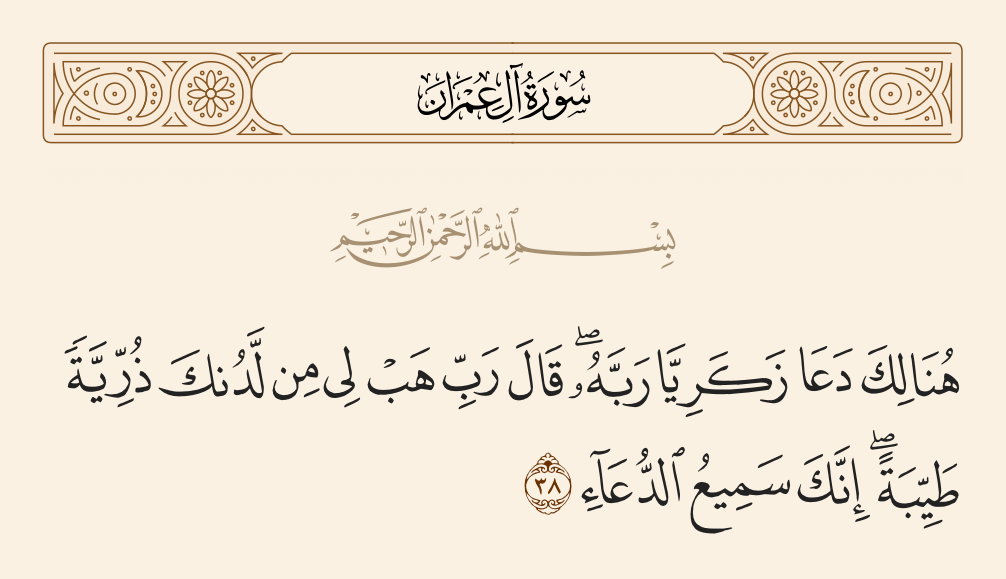 سُورَةُ آلِ عِمْرَانَ
بِسْمِ ٱللَّهِ ٱلرَّحْمَٰنِ ٱلرَّحِيمِ
هُنَالِكَ دَعَا زَكَرِيَّا رَبَّهُۥۖ قَالَ رَبِّ هَبْ لِى مِن لَّدُنكَ ذُرِّيَّةً
طَيِّبَةًۖ إِنَّكَ سَمِيعُ ٱلدُّعَآءِ ٣٨